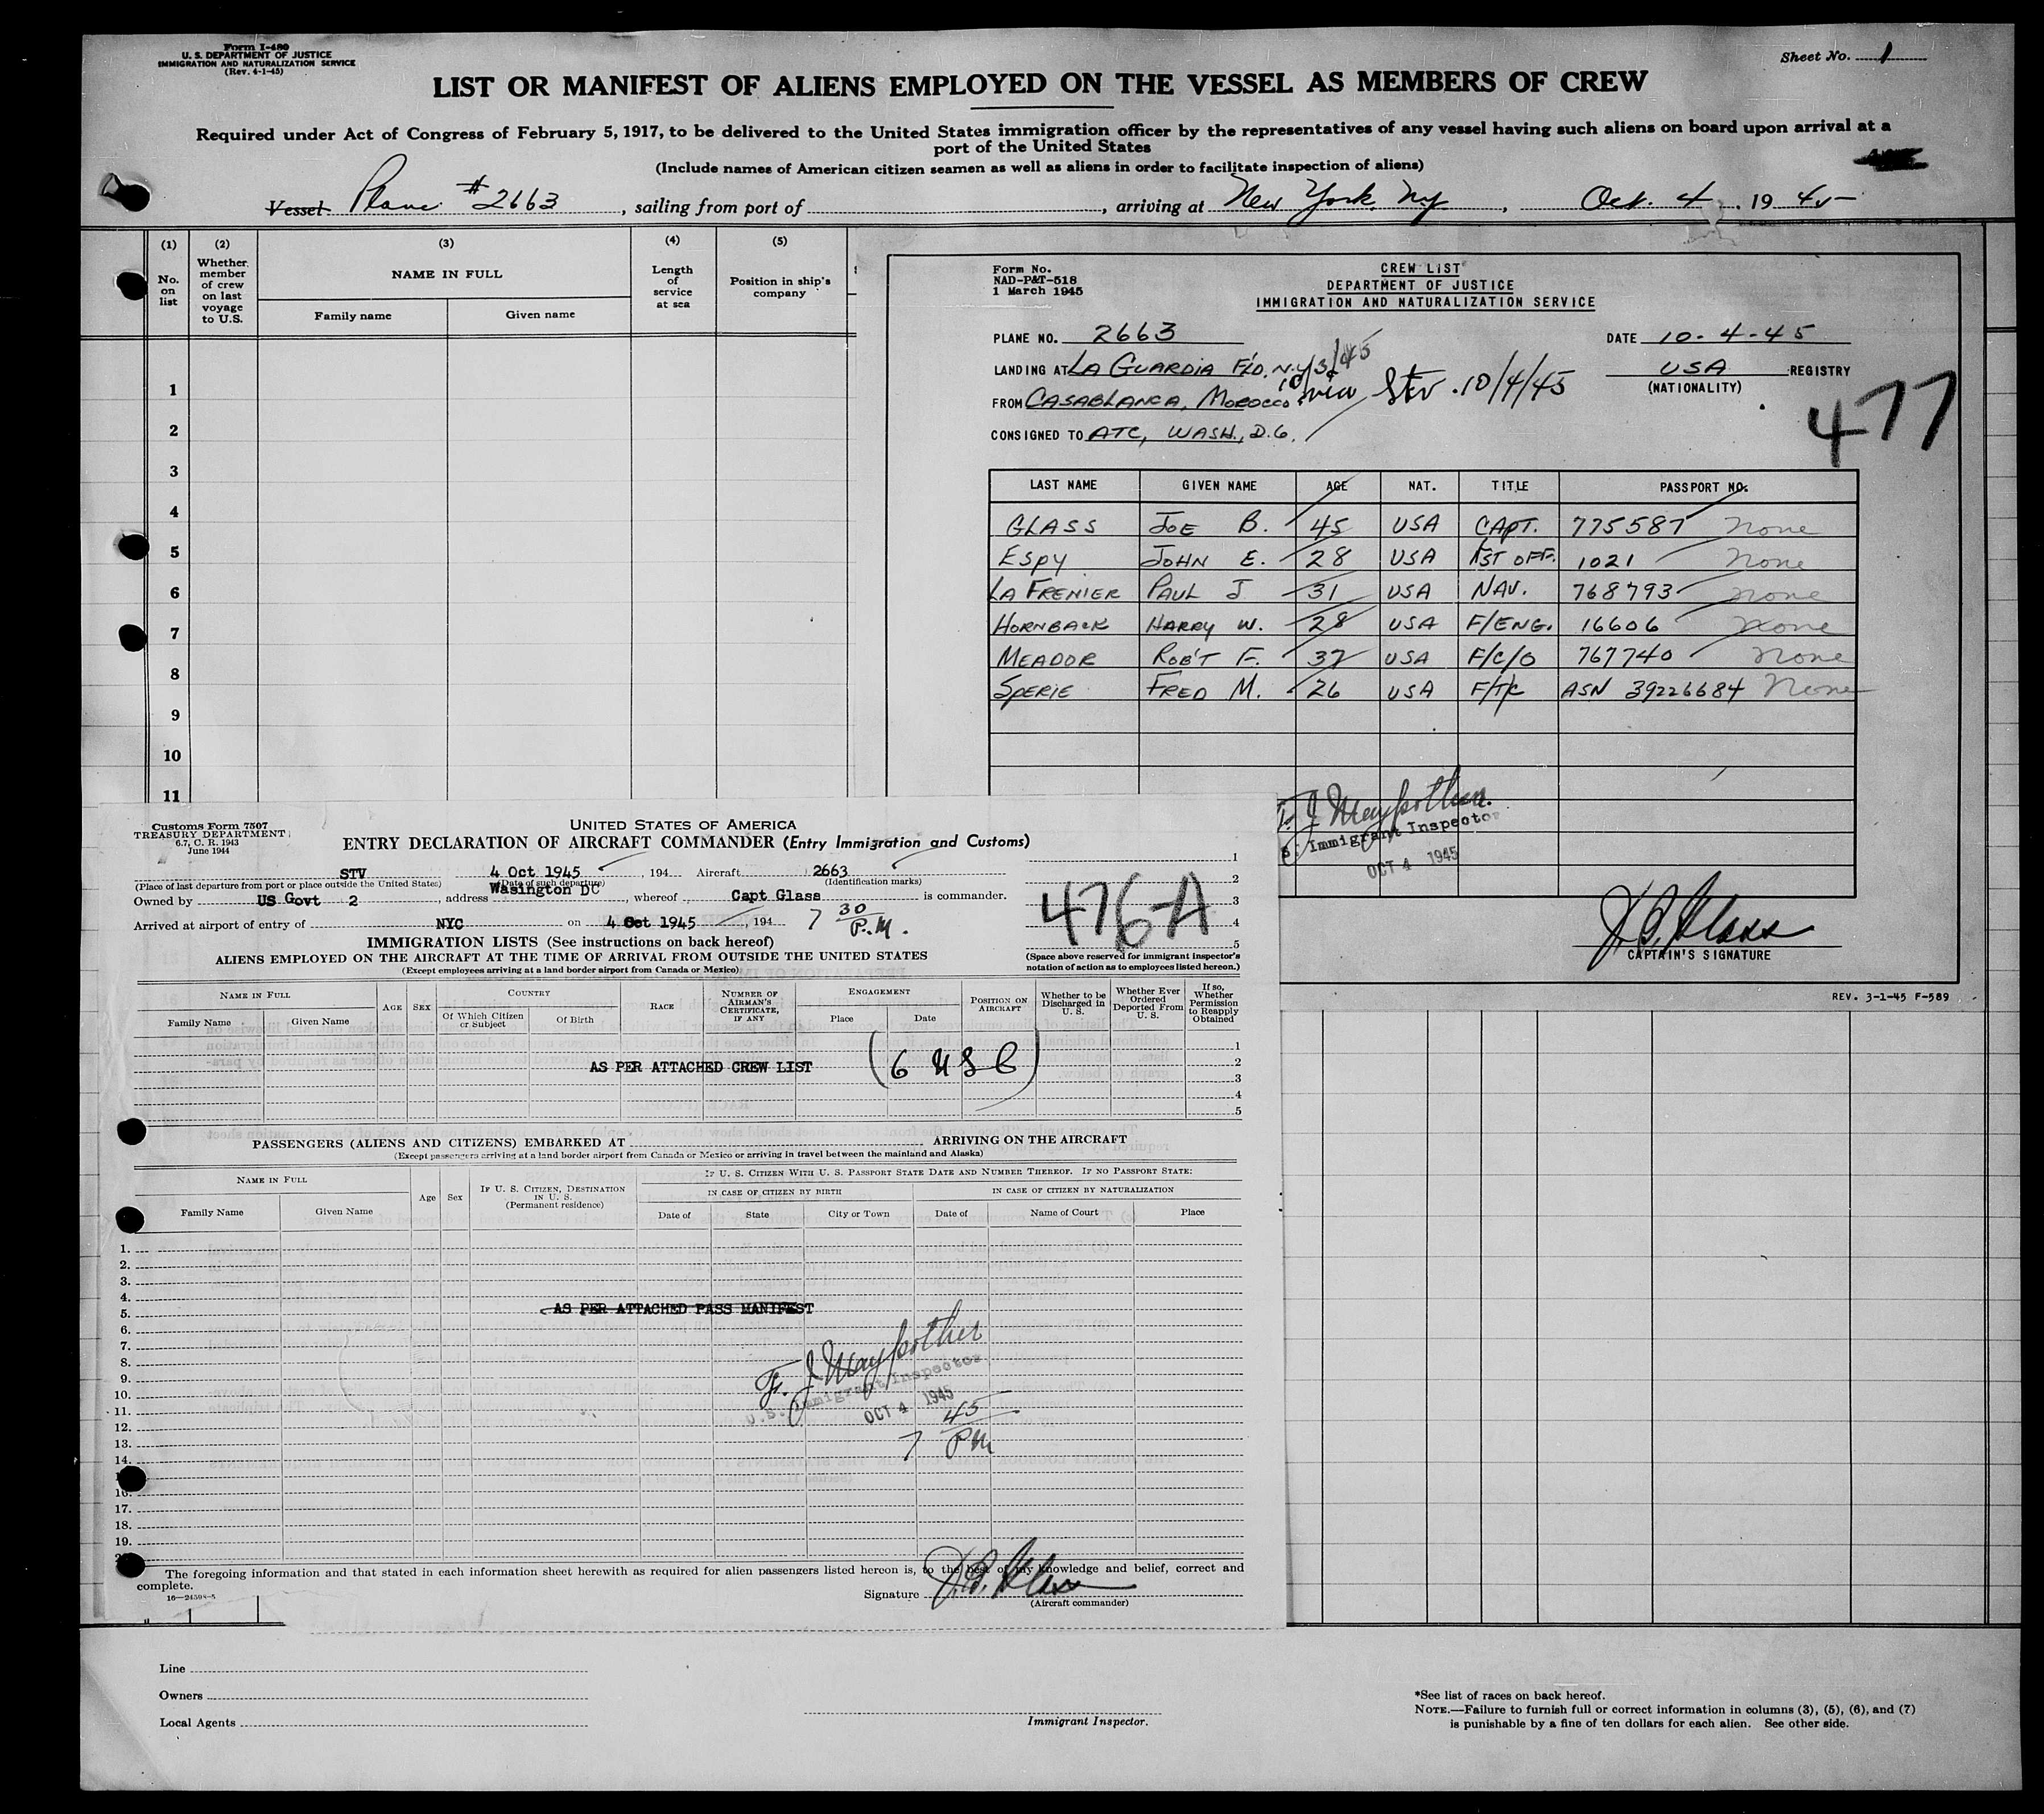 Form I-480
U. S. DEPARTMENT OF JUSTICE
IMMIGRATION AND NATURALIZATION SERVICE
(Rev. 4-1-45)
Sheet No. 1
LIST OR MANIFEST OF ALIENS EMPLOYED ON THE VESSEL AS MEMBERS OF CREW
Required under Act of Congress of February 5, 1917, to be delivered to the United States immigration officer by the representatives of any vessel having such aliens on board upon arrival at a
port of the United States
(Include names of American citizen seamen as well as aliens in order to facilitate inspection of aliens)
Vessel Plane #2663, sailing from port of , arriving at New York, NY, Oct. 4, 1945
(1) (2) (3) (4) (5)
No. on list
Whether member of crew on last voyage to U.S.
NAME IN FULL
Family name Given name
Length of service at sea
Position in ship's company
1
2
3
4
5
6
7
8
9
10
11
Form No.
NAD-P&T-518
1 March 1945
CREW LIST
DEPARTMENT OF JUSTICE
IMMIGRATION AND NATURALIZATION SERVICE
PLANE NO. 2663 DATE 10-4-45
LANDING AT LA GUARDIA FLD. N.Y. USA REGISTRY
(NATIONALITY)
FROM CASABLANCA, MOROCCO via Stv. 10/4/45
477
CONSIGNED TO ATC, WASH., D.C.
LAST NAME GIVEN NAME AGE NAT. TITLE PASSPORT NO.
GLASS JOE B. 45 USA CAPT. 775587 None
ESPY JOHN E. 28 USA 1ST OFF. 1021 None
LA FRENIER PAUL J 31 USA NAV. 768793 None
HORNBACK HARRY W. 28 USA F/ENG. 16606 None
MEADOR ROB'T F. 37 USA F/C/O 767740 None
SPERIE FRED M. 26 USA F/T/C ASN 39226684 None
Immigrant Inspector
OCT 4 1945
J.B. Glass
CAPTAIN'S SIGNATURE
REV. 3-1-45 F-589
Customs Form 7507
TREASURY DEPARTMENT
6.7, C. R. 1943
June 1944
UNITED STATES OF AMERICA
ENTRY DECLARATION OF AIRCRAFT COMMANDER (Entry Immigration and Customs)
STV 4 Oct 1945, 194 Aircraft 2663
(Place of last departure from port or place outside the United States) (Date of such departure) (Identification marks)
Owned by US Govt 2, address Wasington DC, whereof Capt Glass is commander.
Arrived at airport of entry of NYC on 4 Oct 1945, 194 7 30 P.M.
1
2
3
4
5
476-A
(Space above reserved for immigrant inspector's notation of action as to employees listed hereon.)
IMMIGRATION LISTS (See instructions on back hereof)
ALIENS EMPLOYED ON THE AIRCRAFT AT THE TIME OF ARRIVAL FROM OUTSIDE THE UNITED STATES
(Except employees arriving at a land border airport from Canada or Mexico)
NAME IN FULL
Family Name Given Name
AGE SEX
COUNTRY
Of Which Citizen or Subject Of Birth
RACE
NUMBER OF AIRMAN'S CERTIFICATE, IF ANY
ENGAGEMENT
Place Date
POSITION ON AIRCRAFT
Whether to be Discharged in U. S.
Whether Ever Ordered Deported From U. S.
If so, Whether Permission to Reapply Obtained
1
AS PER ATTACHED CREW LIST (6 USC) 2
3
4
5
PASSENGERS (ALIENS AND CITIZENS) EMBARKED AT ARRIVING ON THE AIRCRAFT
(Except passengers arriving at a land border airport from Canada or Mexico or arriving in travel between the mainland and Alaska)
NAME IN FULL
Family Name Given Name
Age Sex
IF U. S. CITIZEN, DESTINATION IN U. S.
(Permanent residence)
IF U. S. CITIZEN WITH U. S. PASSPORT STATE DATE AND NUMBER THEREOF. IF NO PASSPORT STATE:
IN CASE OF CITIZEN BY BIRTH IN CASE OF CITIZEN BY NATURALIZATION
Date of State City or Town Date of Name of Court Place
1.
2.
3.
4.
5. AS PER ATTACHED PASS MANIFEST
6.
7.
8.
9.
10.
11.
12.
13.
14.
16.
17.
18.
19.
U.S. Immigrant Inspector
OCT 4 1945
7 45 PM
The foregoing information and that stated in each information sheet herewith as required for alien passengers listed hereon is, to the best of my knowledge and belief, correct and
complete.
16—24598-5
Signature J.B. Glass
(Aircraft commander)
Line
Owners
Local Agents
Immigrant Inspector.
*See list of races on back hereof.
NOTE.—Failure to furnish full or correct information in columns (3), (5), (6), and (7)
is punishable by a fine of ten dollars for each alien. See other side.